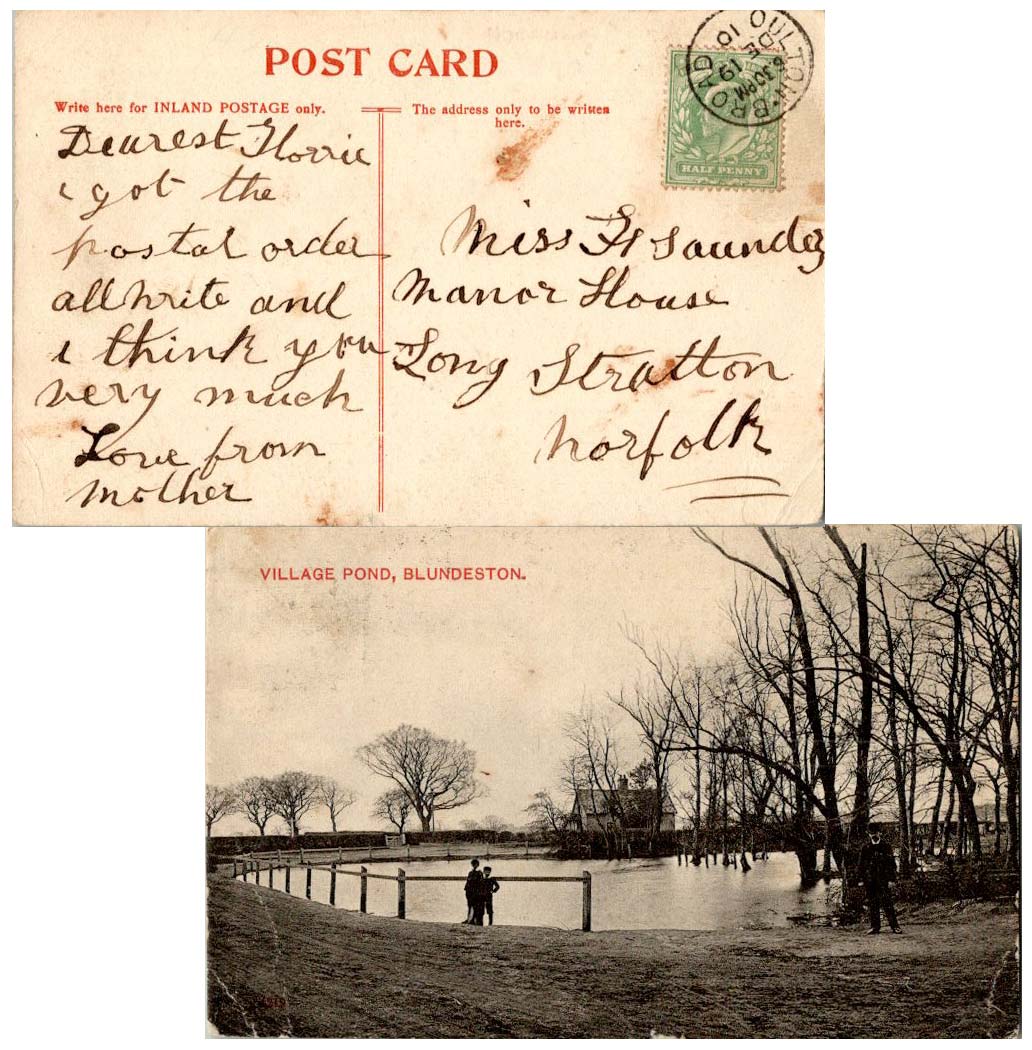 POST CARD
Write here for INLAND POSTAGE only.
The address only to be written
here.
OULTON BROAD
6.30PM
19
DE
10
HALF PENNY
Dearest Florrie
i got the
postal order
allwrite and
i think you
very much
Love from
Mother
Miss F Saunders
Manor House
Long Stratton
Norfolk
VILLAGE POND, BLUNDESTON.